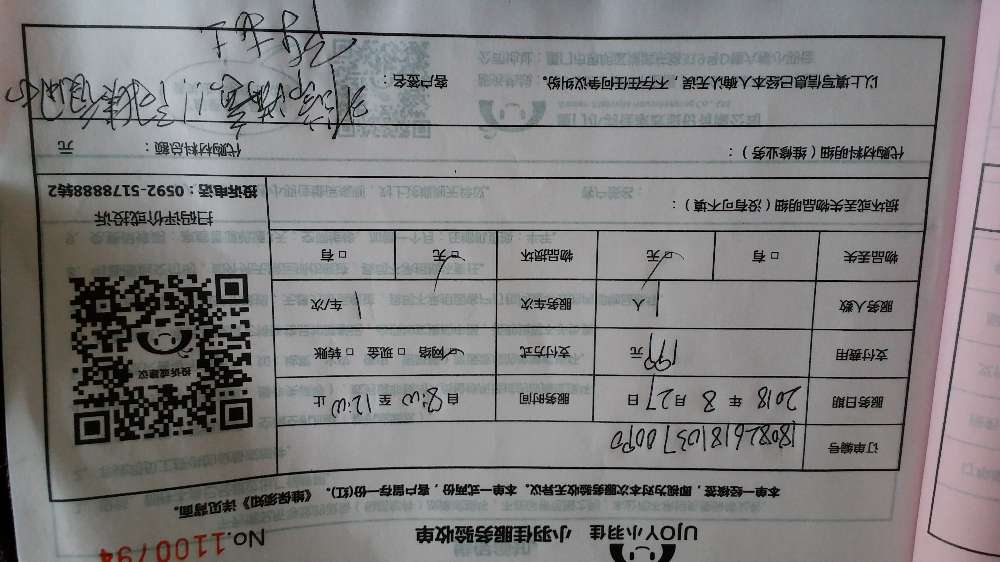 UJOY小羽佳 小羽佳服务验收单
No.1100794
本单一经核签，即视为对本次服务验收无异议。本单一式两份，客户留存一份(红)。《维保须知》详见背面。
订单编号
服务日期 2018 年 8 月 27 日 服务时间 自 8:00 至 12:00 止
支付费用 199 元 支付方式 □网络 □现金 □转账
服务人数 1 人 服务车次 1 车/次
物品丢失 □有 □无 物品损坏 □无 □有
投诉或建议
扫码评价或投诉
投诉电话：0592-5178888转2
损坏或丢失物品明细（没有可不填）：
代购材料明细（维修业务）：
代购材料总额： 元
以上填写信息已经本人确认无误，不存在任何争议纠纷。
客户签名：